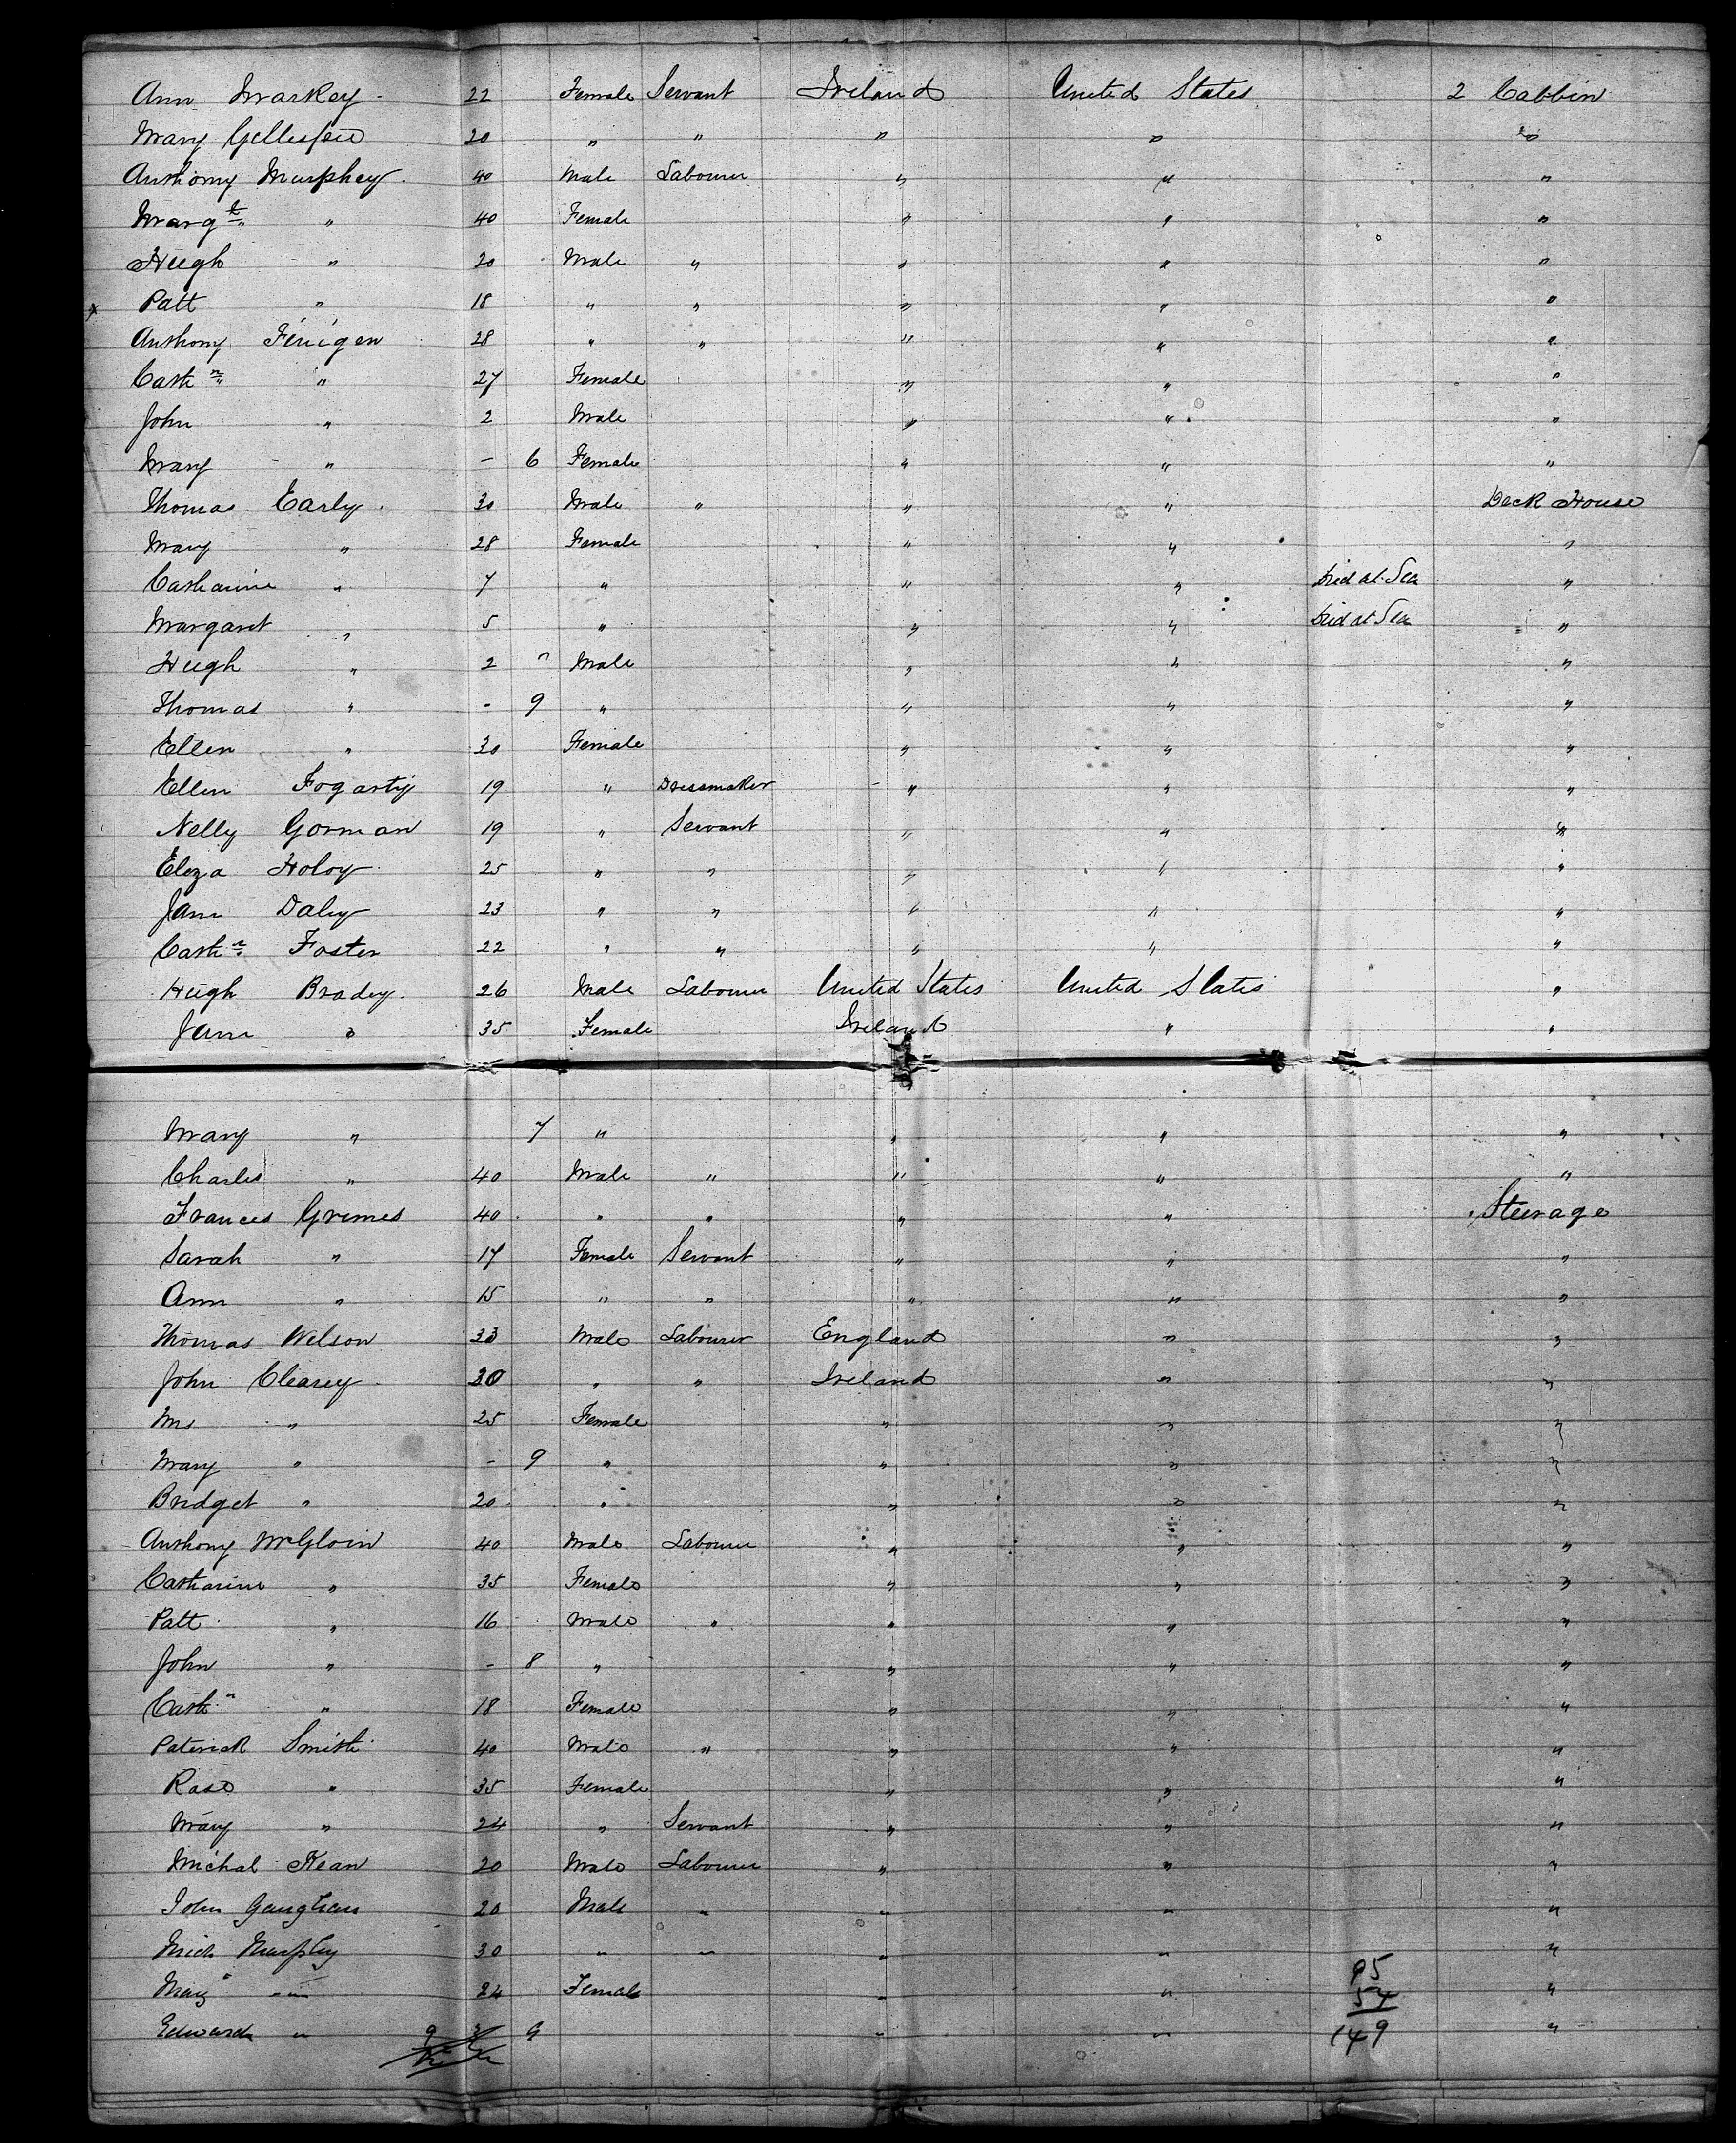 Ann Markey 22 Female Servant Ireland United States 2 Cabbin
Mary Gillespie 20 " " " " "
Anthony Murphey 40 Male Labourer " " "
Marg't " 40 Female " " "
Hugh " 20 Male " " " "
x Patt " 18 " " " " "
Anthony Finigen 28 " " " " "
Cath'n " 27 Female " " "
John " 2 Male " " "
Mary " - 6 Female " " "
Thomas Early 30 Male " " " Deck House
Mary " 28 Female " " "
Catharine " 7 " " " Died at Sea "
Margaret " 5 " " " Died at Sea "
Hugh " 2 " Male " " "
Thomas " - 9 " " " "
Ellen " 30 Female " " "
Ellen Fogarty 19 " Dressmaker " " "
Nelly Gorman 19 " Servant " " "
Eliza Holoy 25 " " " " "
Jane Daley 23 " " " " "
Cath'n Foster 22 " " " " "
Hugh Bradey 26 Male Labourer United States United States "
Jane " 35 Female Ireland " "
Mary " 7 " " " "
Charles " 40 Male " " " "
Frances Grimes 40 " " " " Steerage
Sarah " 17 Female Servant " " "
Ann " 15 " " " " "
Thomas Wilson 33 Male Labourer England " "
John Clearey 30 " " Ireland " "
Mrs " 25 Female " " "
Mary " - 9 " " " "
Bridget " 20 " " " "
Anthony McGloin 40 Male Labourer " " "
Catharine " 35 Female " " "
Patt " 16 Male " " " "
John " - 8 " " " "
Cath'n " 18 Female " " "
Paterick Smith 40 Male " " " "
Rose " 35 Female " " "
Mary " 24 " Servant " " "
Michal Kean 20 Male Labourer " " "
John Gaughan 20 Male " " " "
Mich Murphy 30 " " " " "
95
Mary " 24 Female " " "
54
Edward " 9 " " 149 "